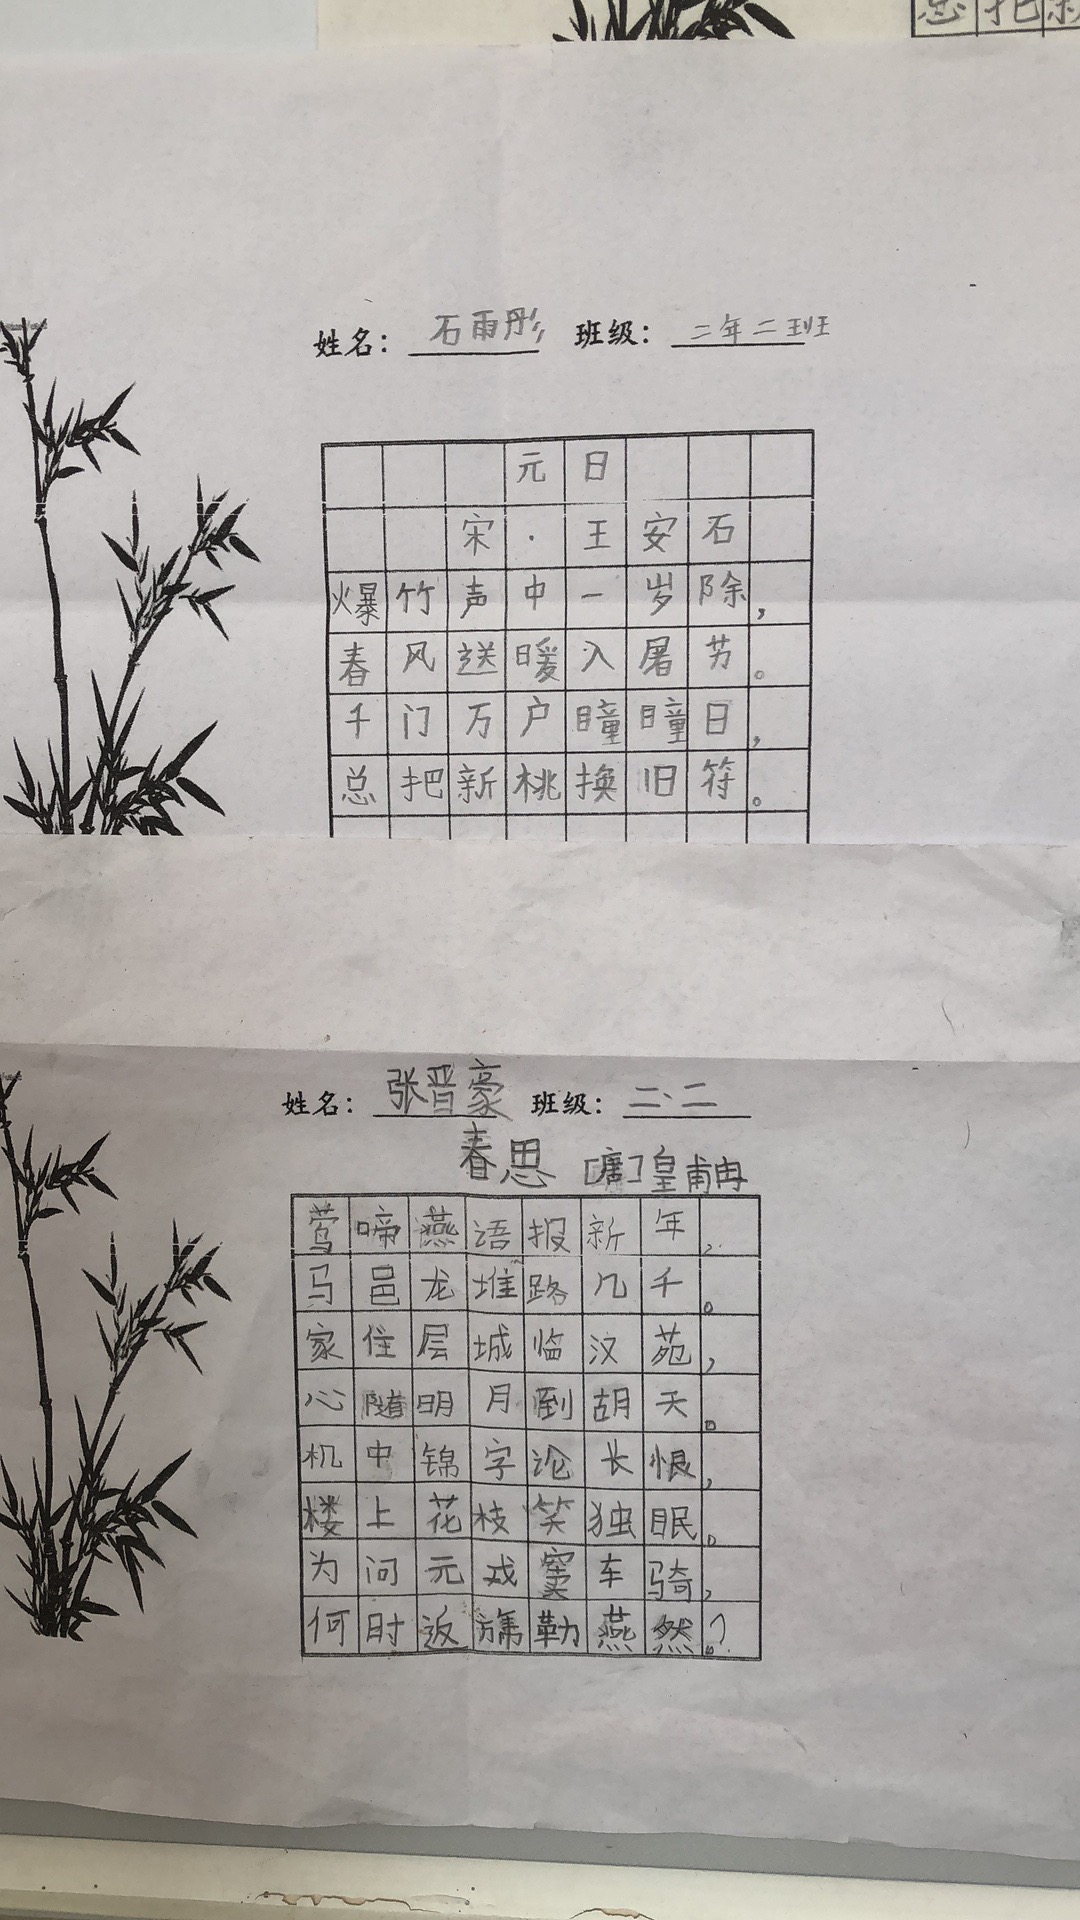 总把新
姓名：石雨彤 班级：二年二班
元日
宋·王安石
爆竹声中一岁除，
春风送暖入屠苏。
千门万户瞳瞳日，
总把新桃换旧符。
姓名：张晋豪 班级：二、二
春思 [唐]皇甫冉
莺啼燕语报新年，
马邑龙堆路几千。
家住层城临汉苑，
心随明月到胡天。
机中锦字论长恨，
楼上花枝笑独眠。
为问元戎窦车骑，
何时返旆勒燕然？